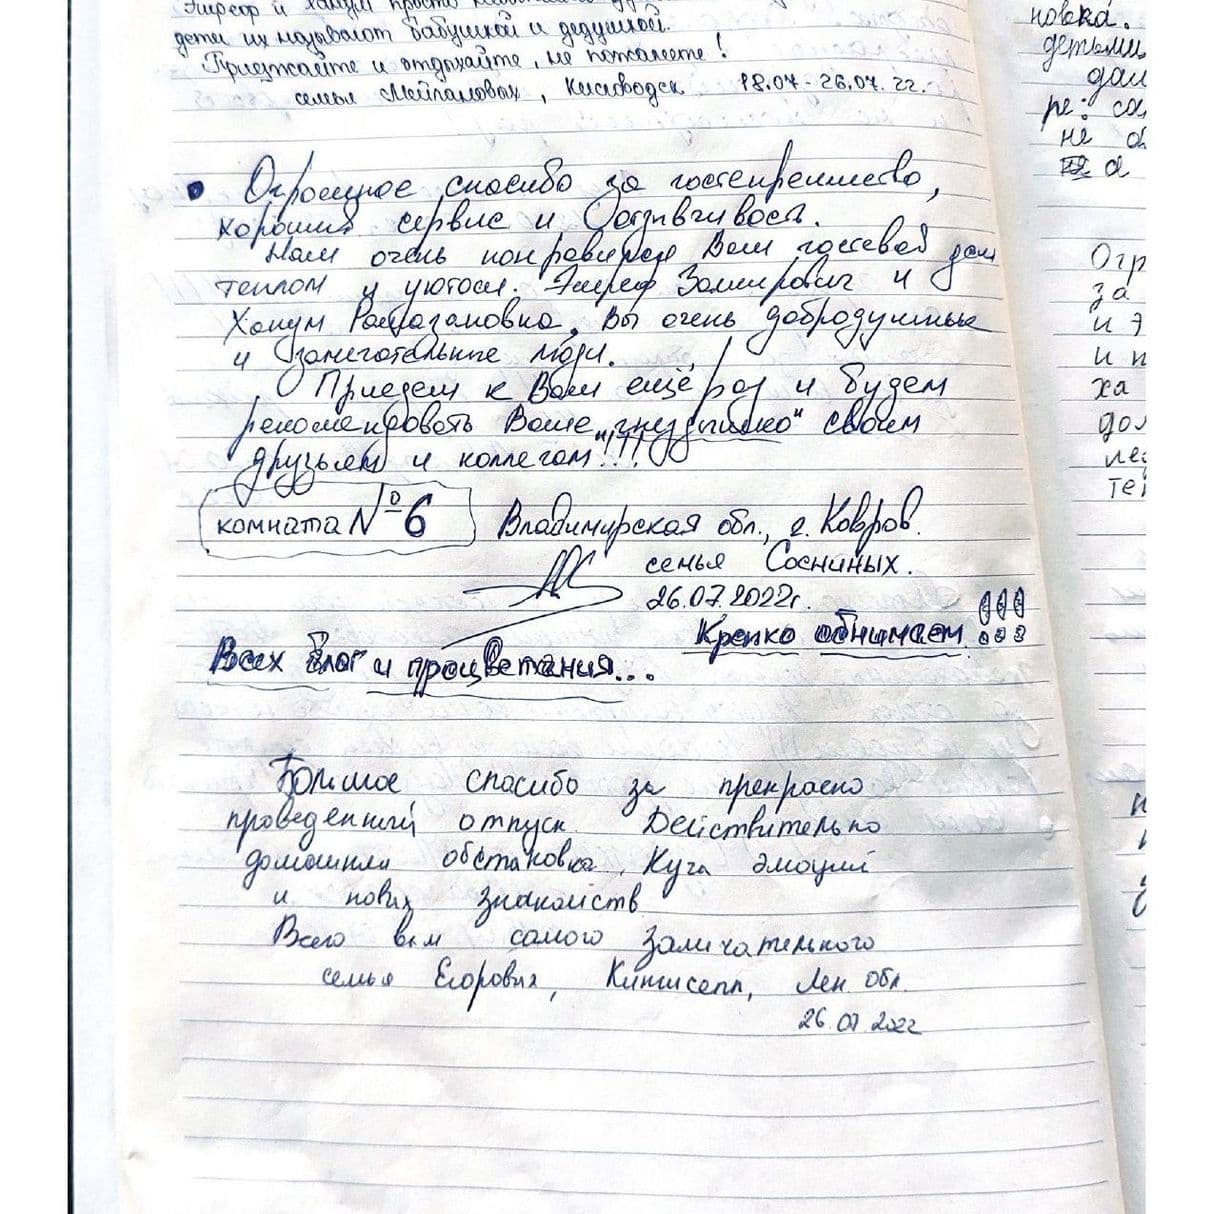 Эшреф и Ханум просто
дети их называют бабушкой и дедушкой.
Приезжайте и отдыхайте, не пожалеете!
семья Мейлановых, Кисловодск 18.07-26.07.22.
• Огромное спасибо за гостеприимство,
хороший сервис и отзывчивость.
Нам очень понравился Ваш гостевой дом
теплом и уютом. Эшреф Замирович и
Ханум Рамазановна, Вы очень добродушные
и замечательные люди.
Приедем к Вам ещё раз и будем
рекомендовать Ваше "гнездышко" своим
друзьям и коллегам!!!
комната №6 Владимирская обл., г. Ковров.
семья Сосниных.
26.07.2022г.
Крепко обнимаем!!!
Всех благ и процветания...
Большое спасибо за прекрасно
проведенный отпуск. Действительно
домашняя обстановка. Куча эмоций
и новых знакомств
Всего вам самого замичательного
семья Егоровых, Кингисепп, Лен обл.
26.07.2022
новка.
детьми
дал
ре: са
не о
а
Огр
за
и Э
и п
ха
дол
ле
те